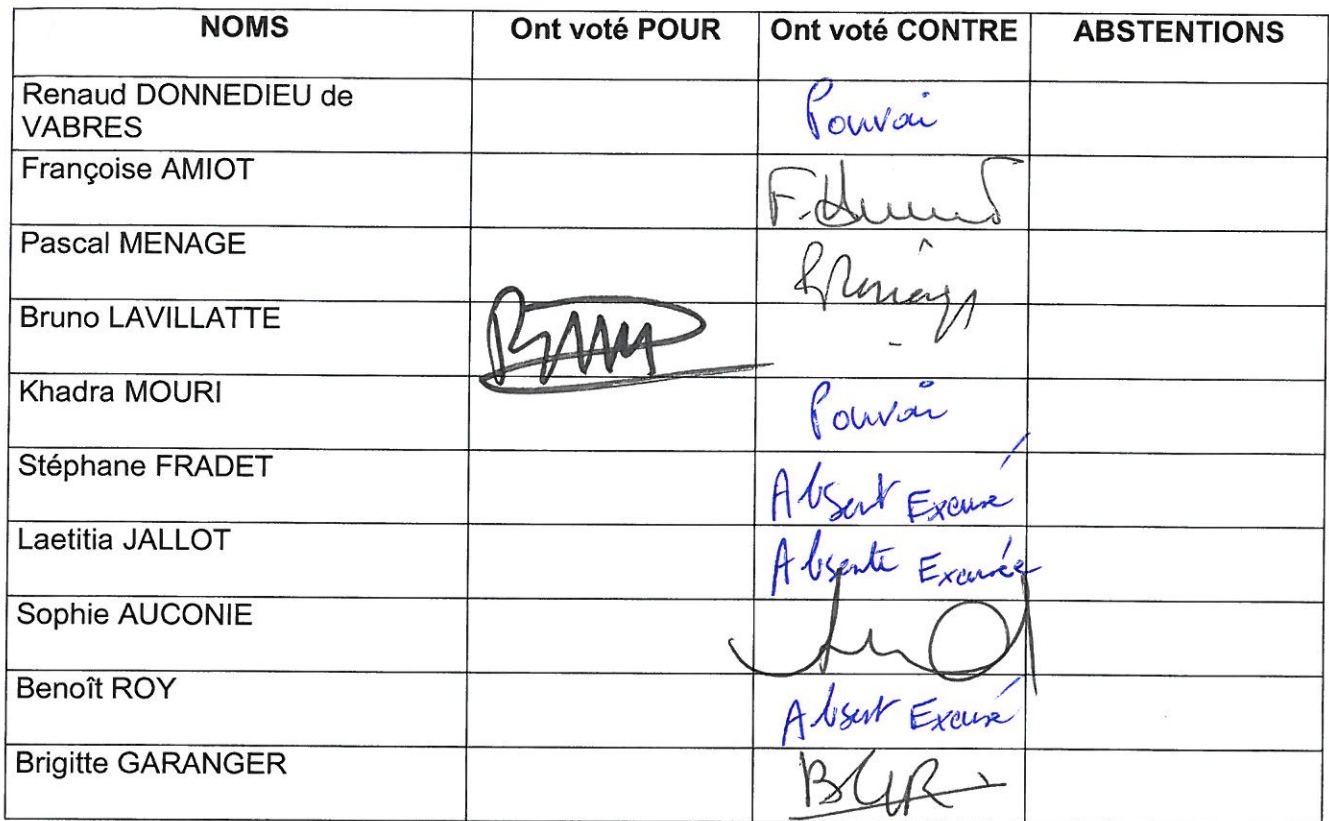 NOMS Ont voté POUR Ont voté CONTRE ABSTENTIONS
Renaud DONNEDIEU de
VABRES Pouvoir
Françoise AMIOT
Pascal MENAGE
Bruno LAVILLATTE
Khadra MOURI Pouvoir
Stéphane FRADET Absent Excusé
Laetitia JALLOT Absente Excusée
Sophie AUCONIE
Benoît ROY Absent Excusé
Brigitte GARANGER